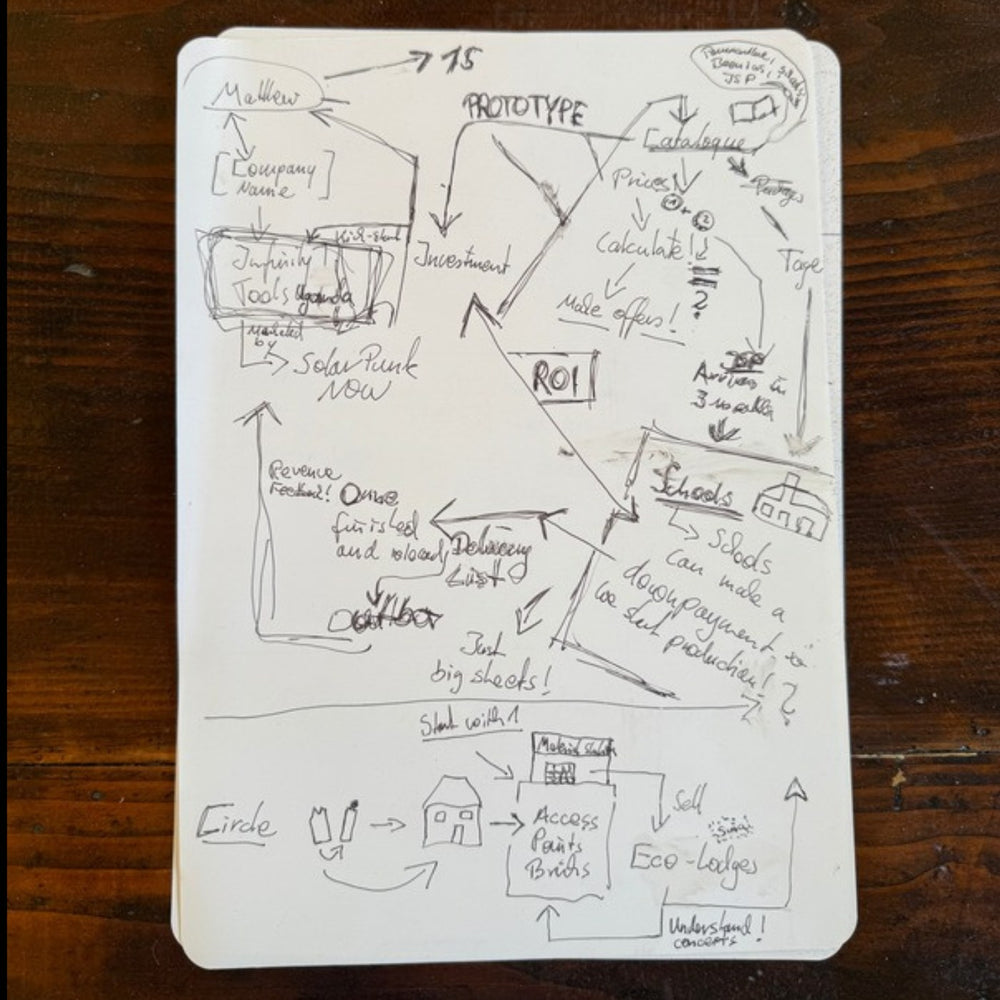 Matthew
→ 15
PROTOTYPE
JSP
Catalogue
[Company
Name]
Prices!
1 + 2
Kick-Start
Calculate!
Infinity
Tools Uganda
Investment
Tage
?
Make offers!
Marketed
by
Solar Punk
NOW
ROI
Arrives in
3 months
Schools
Schools
can make a
downpayment, so
we start production!
?
Revenue
Feedback!
Once
finished
and
Delivery
List
Just
big sheets!
Start with 1
Material
Circle
Access
Points
Bricks
Sell
Eco-Lodges
Understand!
concepts